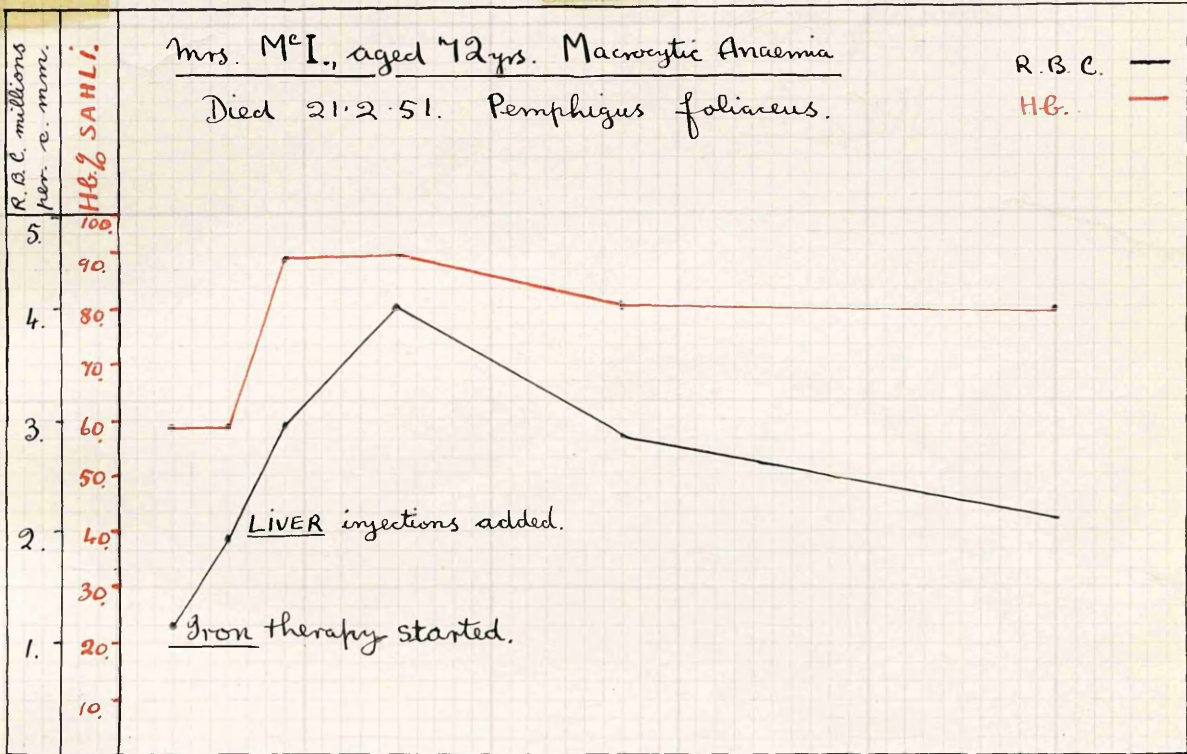 R.B.C. millions
per. c. mm.
Hb.% SAHLI.
Mrs. McI., aged 72 yrs. Macrocytic Anaemia
Died 21.2.51. Pemphigus foliaceus.
R.B.C.
Hb.
5.
100.
90.
4.
80.
70.
3.
60.
50.
2.
40.
LIVER injections added.
30.
Iron therapy started.
1.
20.
10.